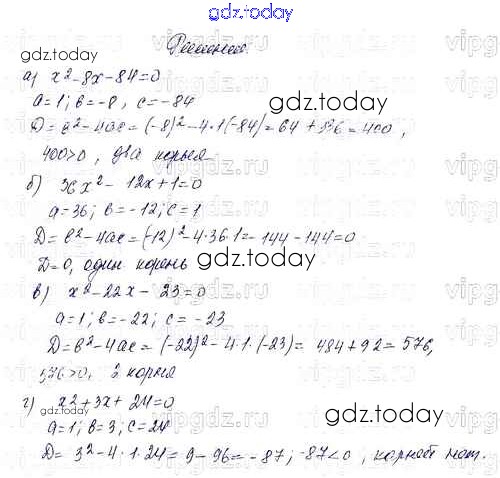 gdz.today
gdz.today
Решение.
а) x²-8x-84=0
a=1; в=-8, c=-84
gdz.today
D=в²-4ac=(-8)²-4·1(-84)=64+336=400,
400>0, два корня
б) 36x²-12x+1=0
a=36; в=-12; c=1
D=в²-4ac=(-12)²-4·36·1=144-144=0
D=0, один корень
gdz.today
в) x²-22x-23=0
a=1; в=-22; c=-23
D=в²-4ac=(-22)²-4·1·(-23)=484+92=576,
576>0, 2 корня
г) x²+3x+24=0
gdz.today
gdz.today
a=1; в=3; c=24
D=3²-4·1·24=9-96=-87; -87<0, корней нет.
vipgdz.ru